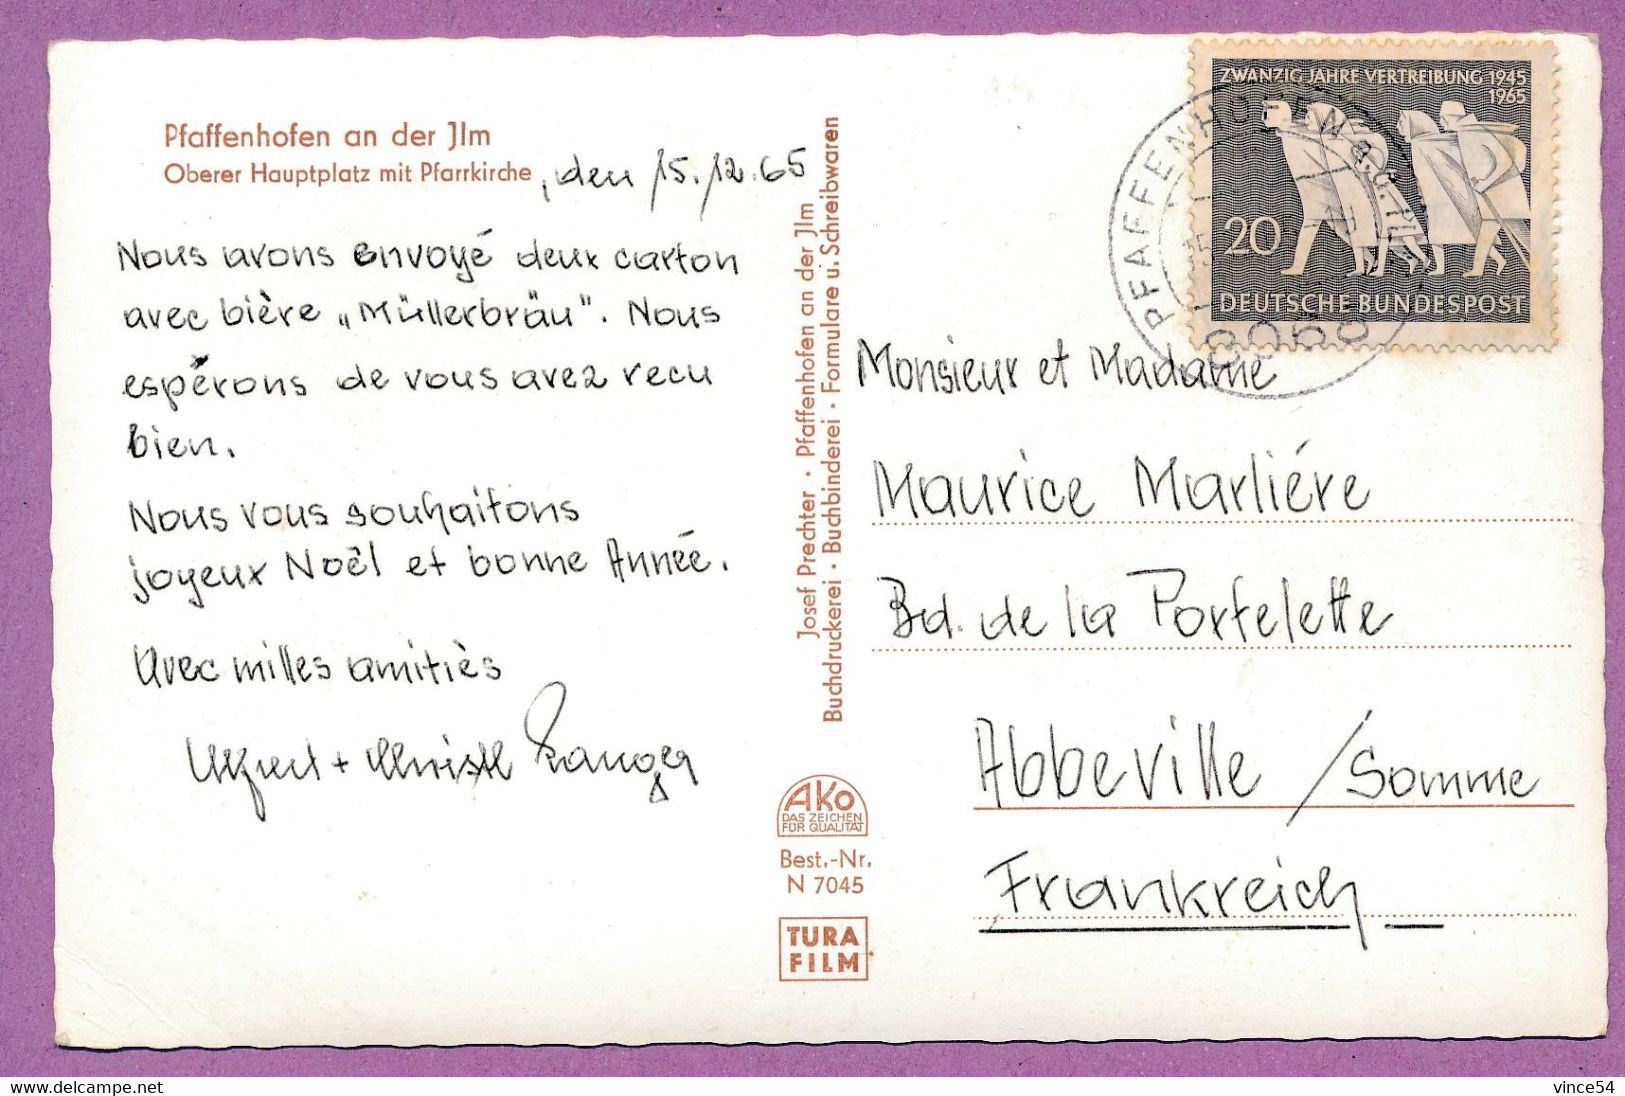 Pfaffenhofen an der Jlm
Oberer Hauptplatz mit Pfarrkirche
, den 15.12.65
Nous avons envoyé deux carton
avec bière „Müllerbräu". Nous
espérons de vous avez recu
bien.
Nous vous souhaitons
joyeux Noël et bonne Année.
Avec milles amitiès
Alfred + Christl
Josef Prechter · Pfaffenhofen an der Jlm
Buchdruckerei · Buchbinderei · Formulare u. Schreibwaren
AKO
DAS ZEICHEN
FÜR QUALITÄT
Best.-Nr.
N 7045
TURA
FILM
ZWANZIG JAHRE VERTREIBUNG 1945
1965
20
DEUTSCHE BUNDESPOST
PFAFFENHOFEN a.d. Ilm
8068
Monsieur et Madame
Maurice Marliére
Bd. de la Portelette
Abbeville / Somme
Frankreich
delcampe.net
vince54